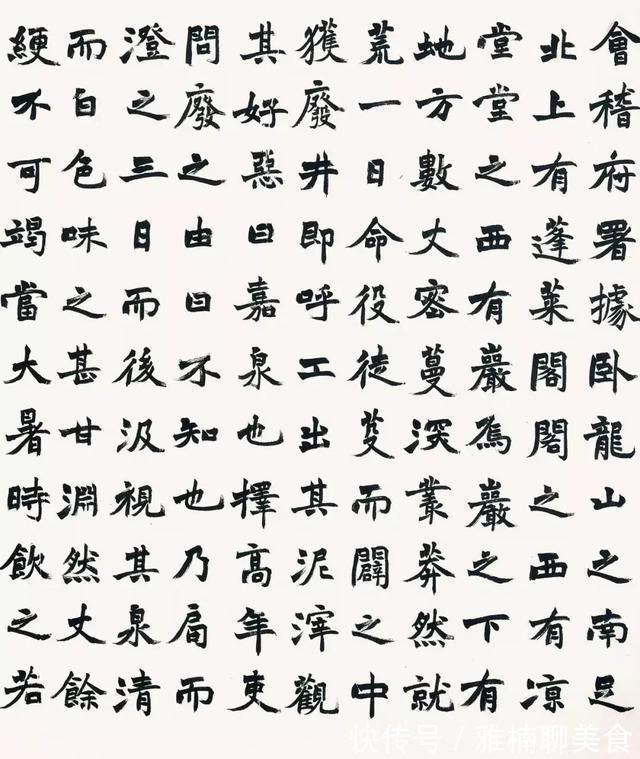 會稽府署據卧龍山之南足
北上有蓬萊閣閣之西有凉
堂堂之西有巖焉巖之下有
地方數丈密蔓深叢莽然就
荒一日命役徒芟而闢之中
獲廢井即呼工出其泥滓觀
其好惡曰嘉泉也擇高年吏
問廢之由曰不知也乃扃而
澄之三日而後汲視其泉清
而白色味之甚甘淵然丈餘
綆不可竭當大暑時飲之若
快传号/雅楠聊美食